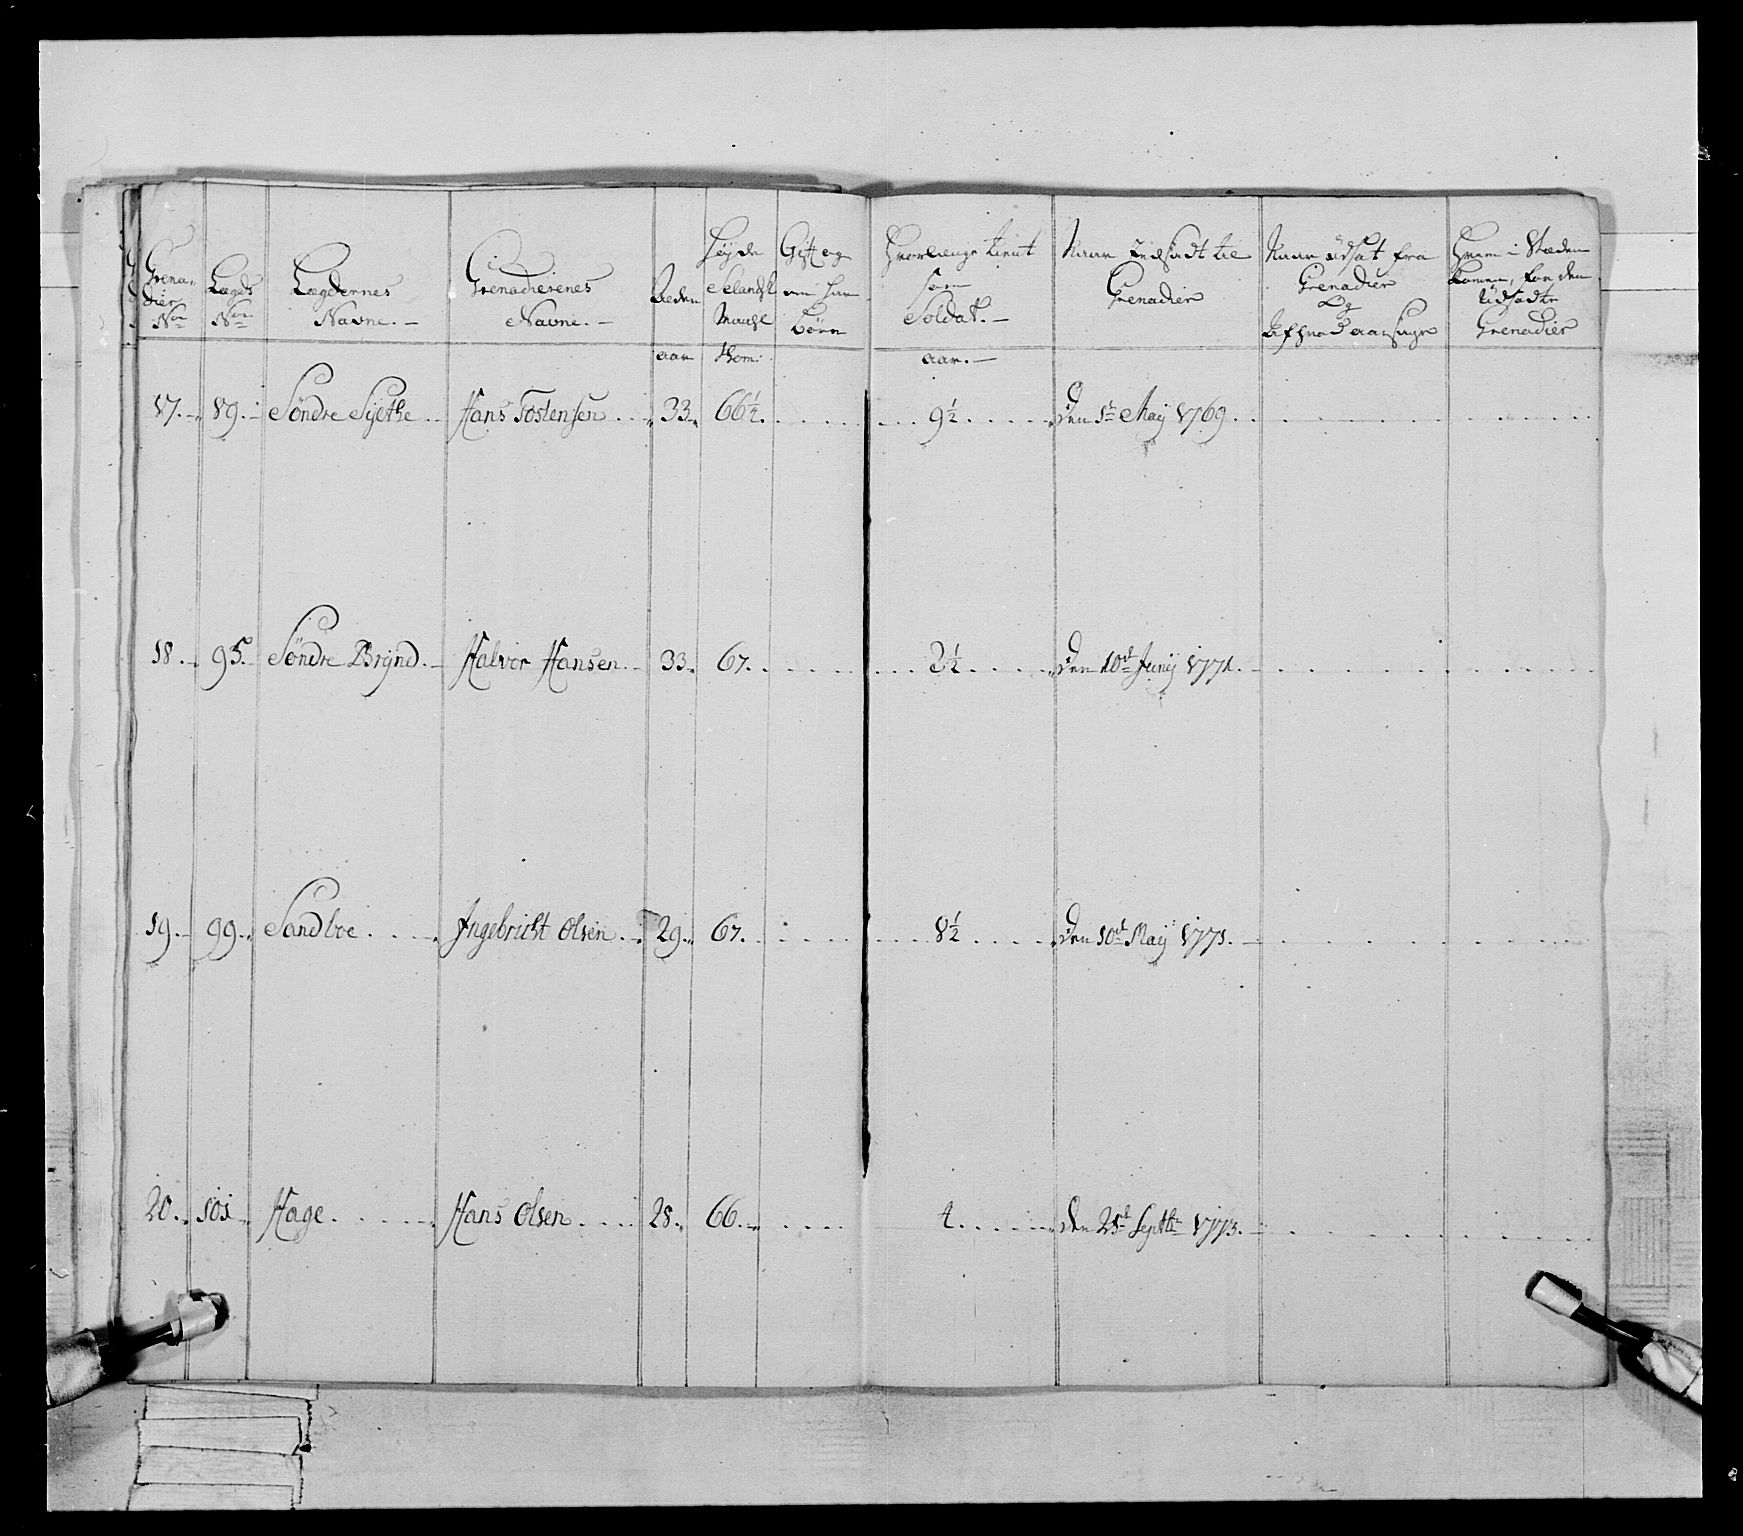 Grena-
dier
No
Lægds
No
Lægdernes
Navne. —
Grenadierenes
Navne. —
Alder
aar
Høyde
Selandsk
Maahl
Thom:
Gift og
om har
børn
Hvorlænge tient
som
Soldat. —
aar. —
Naar Indsadt til
Grenadier
Naar udsat fra
Grenadier
Og
Af hvad aarsage
Hvem i Stæden
kommen, for den
Udsadte
Grenadier
17. 89. Søndre Syethe Hans Tostensen 33. 66½. 9½ Den 1t May 1769.
18. 95. Søndre Brÿnd. Halvor Hansen 33. 67. 2½ Den 10t Junÿ 1771.
19. 99. Sandboe Ingebricht Olsen. 29. 67. 8½ Den 10t Maÿ 1771.
20. 101 Hage. Hans Olsen 28. 66. 4. Den 28t Septbr 1773.